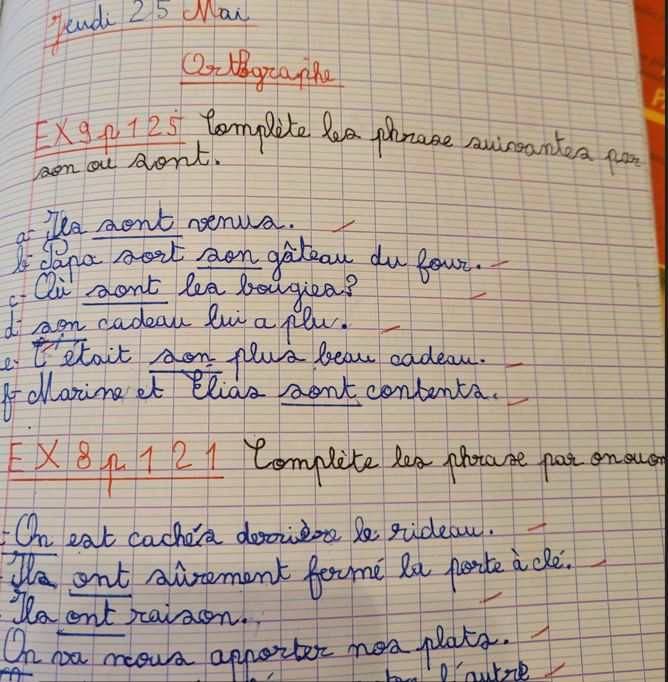 Jeudi 25 Mai
Orthographe
EX9p125 Complète les phrase suivantes par
son ou sont.
a- Ils sont venus.
b- Papa sort son gâteau du four.
c- Où sont les bougies?
d- son cadeau lui a plu.
e- C'était son plus beau cadeau.
f- Marine et Elias sont contents.
EX 8 p 121 Complète les phrase par on ou on
On est cachés derrière le rideau.
Ils ont sûrement fermé la porte à clé.
Ils ont raison.
On va nous apporter nos plats.
l'autre